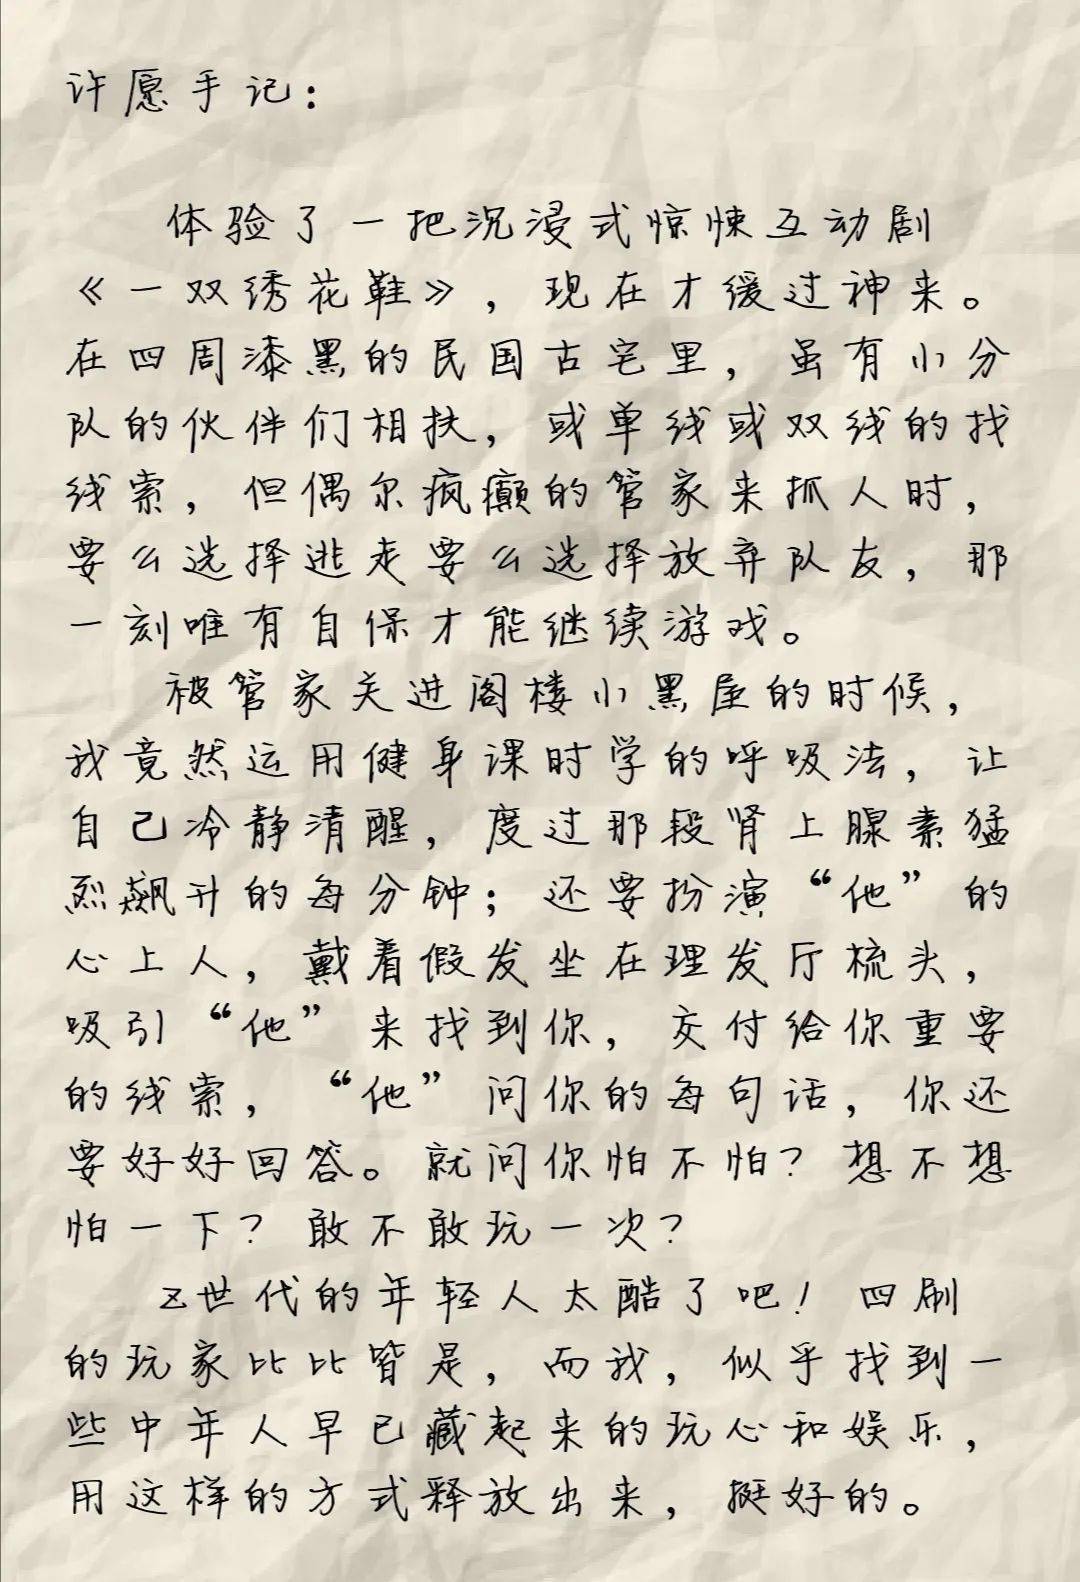 许愿手记：
体验了一把沉浸式惊悚互动剧
《一双绣花鞋》，现在才缓过神来。
在四周漆黑的民国古宅里，虽有小分
队的伙伴们相扶，或单线或双线的找
线索，但偶尔疯癫的管家来抓人时，
要么选择逃走要么选择放弃队友，那
一刻唯有自保才能继续游戏。
被管家关进阁楼小黑屋的时候，
我竟然运用健身课时学的呼吸法，让
自己冷静清醒，度过那段肾上腺素猛
烈飙升的每分钟；还要扮演“他”的
心上人，戴着假发坐在理发厅梳头，
吸引“他”来找到你，交付给你重要
的线索，“他”问你的每句话，你还
要好好回答。就问你怕不怕？想不想
怕一下？敢不敢玩一次？
Z世代的年轻人太酷了吧！四刷
的玩家比比皆是，而我，似乎找到一
些中年人早已藏起来的玩心和娱乐，
用这样的方式释放出来，挺好的。